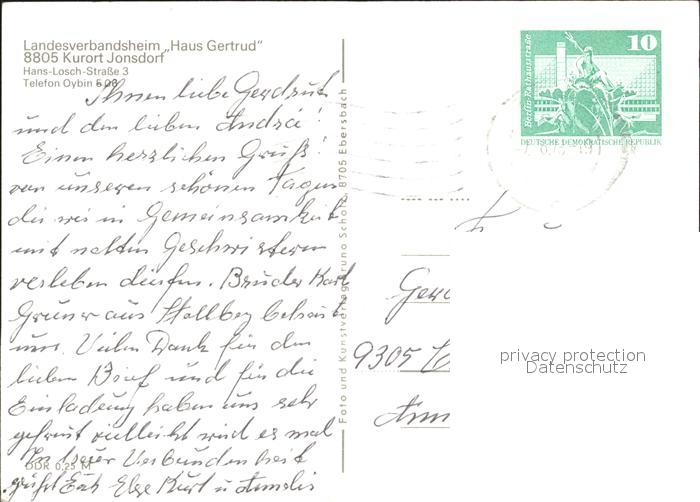 Landesverbandsheim „Haus Gertrud"
8805 Kurort Jonsdorf
Hans-Losch-Straße 3
Telefon Oybin 5 08
Ihnen liebe Gerdrut
und den lieben André!
Einen herzlichen Gruß
von unseren schönen Tagen
die wir in Gemeinsamkeit
mit netten Geschwistern
verleben dürfen. Bruder Karl
aus betreut
uns. Vielen Dank für den
lieben Brief und für die
Einladung haben uns sehr
gefreut vielleicht wird es mal
In treuer Verbundenheit
DDR 0,25 M
grüßt Euch Kurt u
Foto und Kunstverlag Bruno Scholz, 8705 Ebersbach
Berlin-Rathausstraße
10
DEUTSCHE DEMOKRATISCHE REPUBLIK
9305
privacy protection
Datenschutz